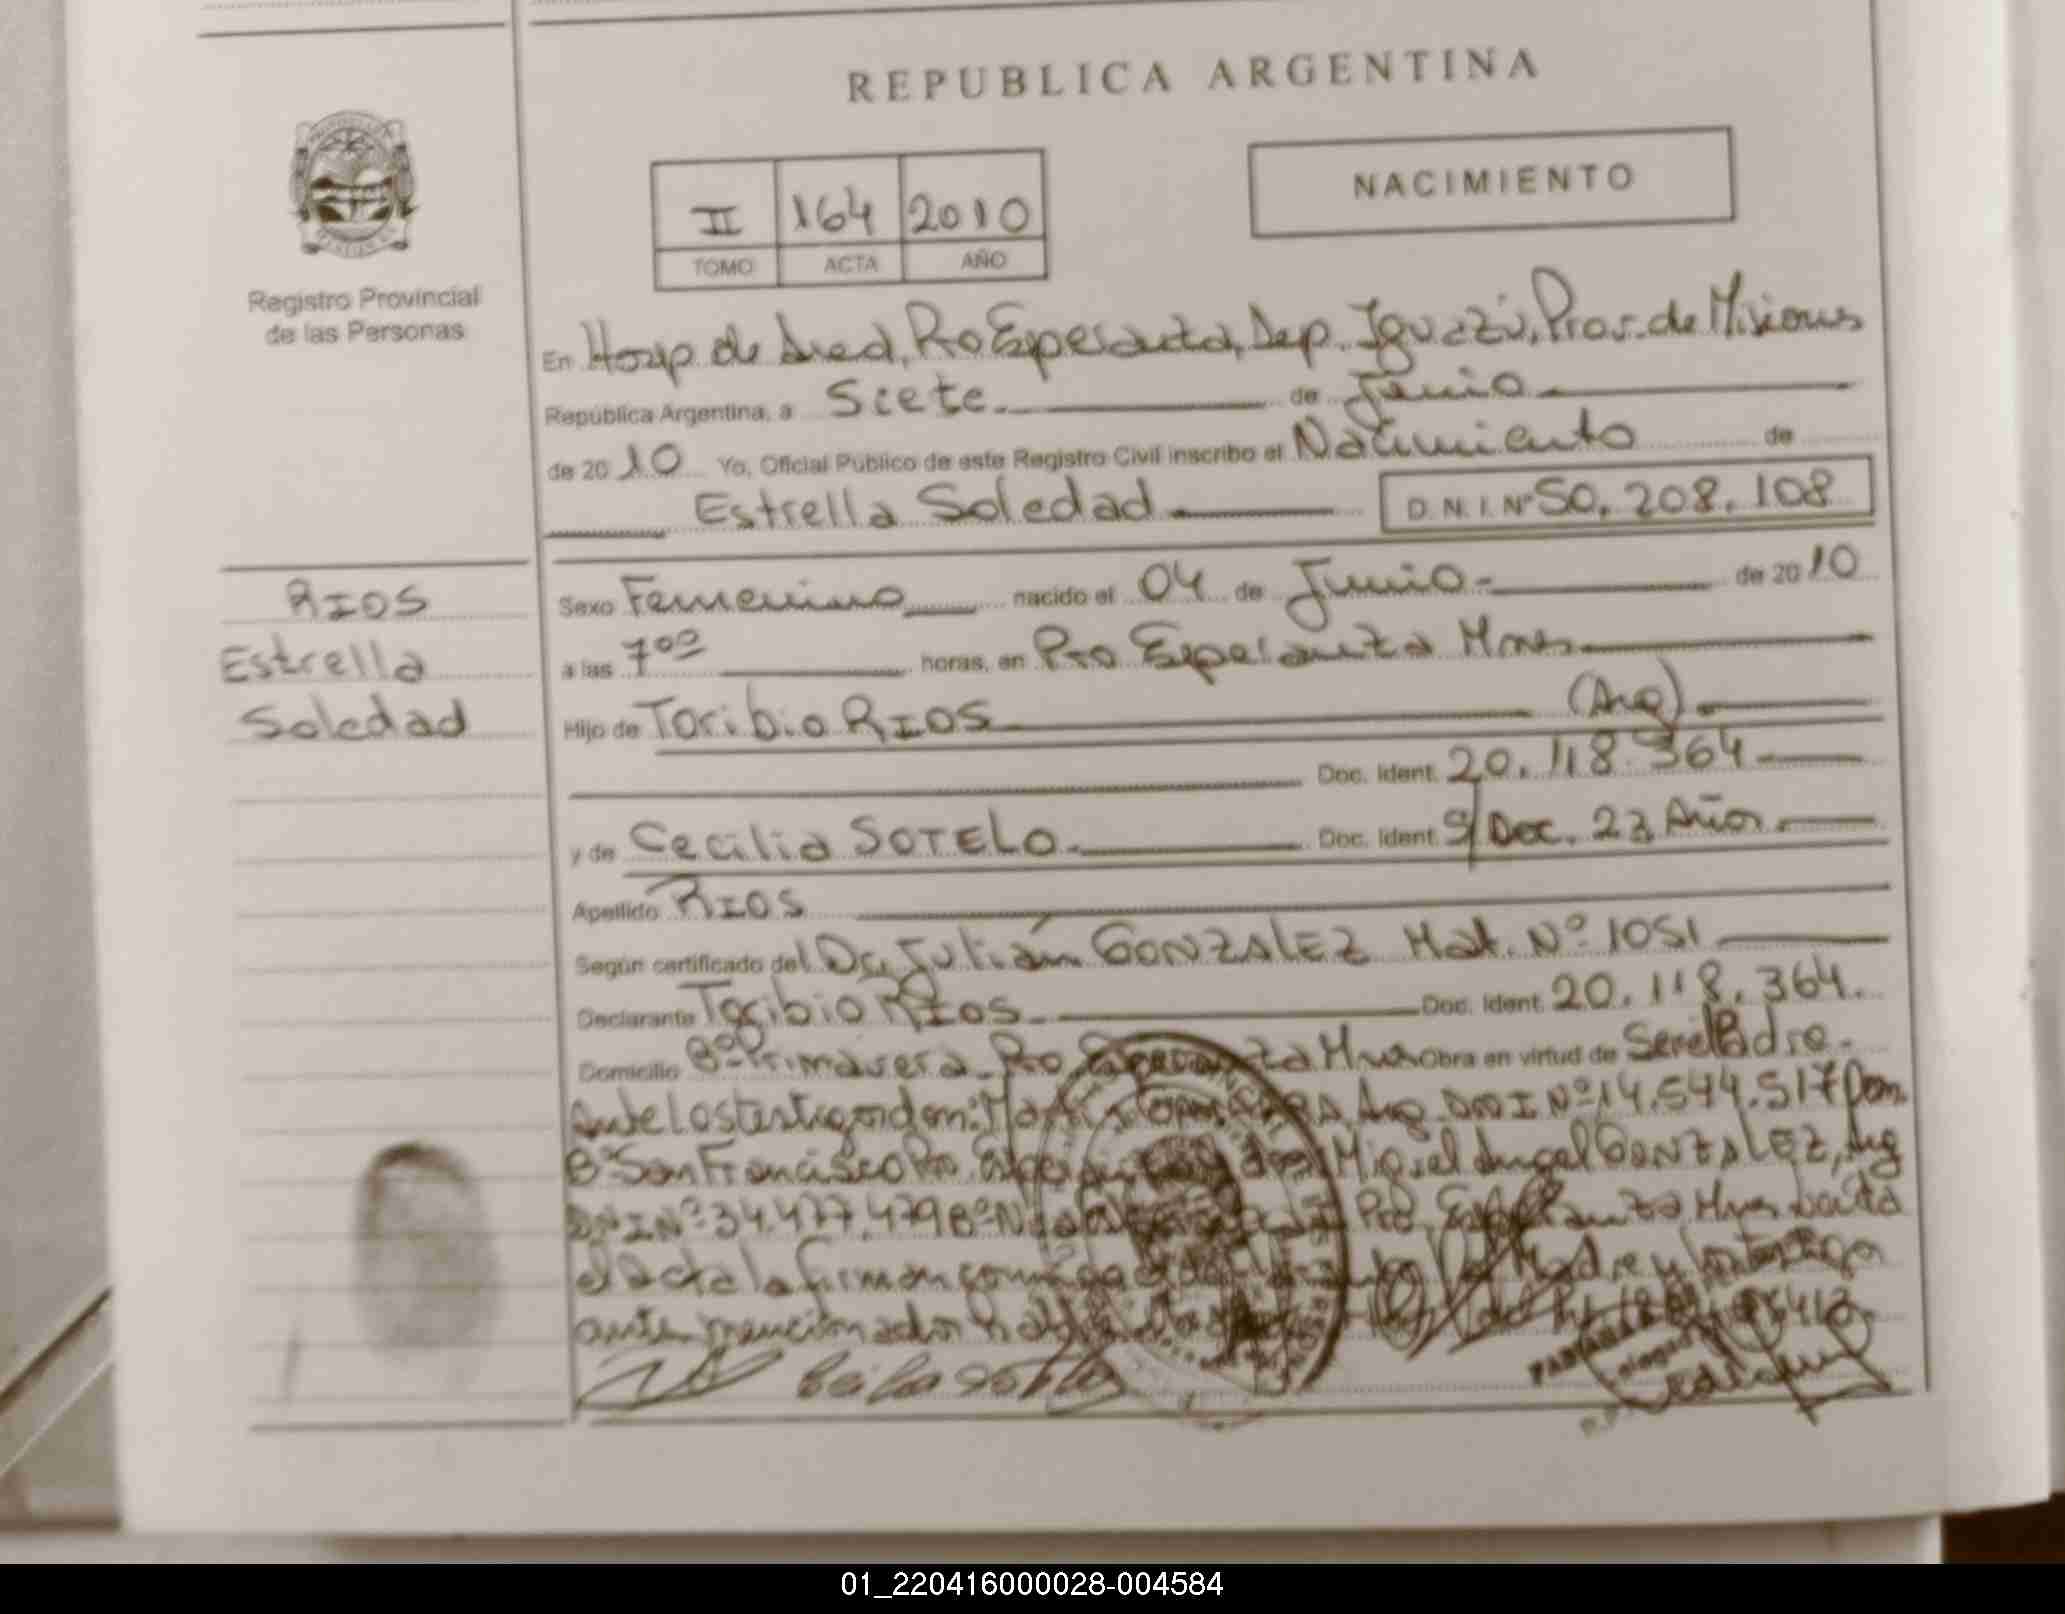 REPUBLICA ARGENTINA
NACIMIENTO
II 164 2010
TOMO ACTA AÑO
Registro Provincial
de las Personas
En Hosp de Area, Pto Esperanza, Dep. Iguazú, Prov. de Misiones
República Argentina, a Siete. de Junio
de 2010 Yo, Oficial Público de este Registro Civil inscribo el Nacimiento de
Estrella Soledad D.N.I.Nº 50.208.108
RIOS
Estrella
Soledad
Sexo Femenino nacido el 04 de Junio.- de 2010
a las 7ºº horas, en Pto Esperanza Mnes
Hijo de Toribio RIOS (Arg).
Doc. Ident. 20.118.364
y de Cecilia SOTELO. Doc. Ident. S/Doc. 23 Años.
Apellido RIOS
Según certificado del Dr. Julián GONZALEZ Mat. Nº 1051
Declarante Toribio RIOS. Doc. Ident. 20.118.364.
Domicilio Bº Primavera Pto Esperanza Mnes Obra en virtud de Ser el Padre.
Ante los testigos don: Arg. DNI Nº 14.544.517 Dom.
Bº San Francisco Pto. don Miguel Angel GONZALEZ, Arg
DNI Nº 34.477.479 Bº Pto. Esperanza Mnes
el acta la firman conmigo Madre y los testigos
ante mencionados
01_220416000028-004584